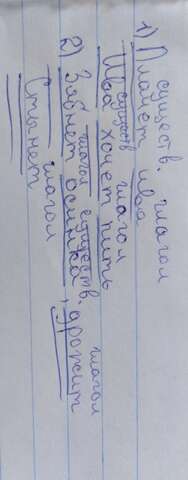 существ. глагол
1) Плачет ива
существ глагол
Ива хочет пить
глагол существ. глагол
2) Зябнет осинка, дрожит
глагол
Стынет